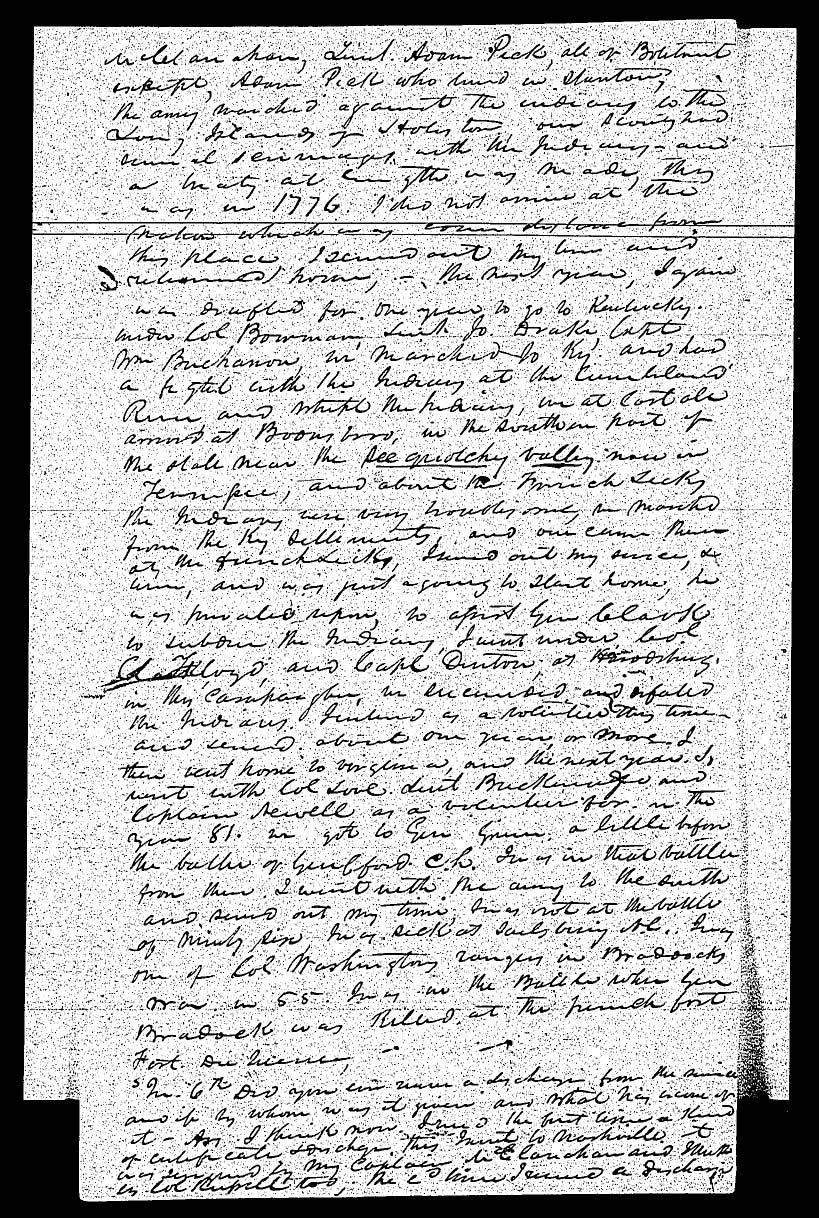 McClanahan, Lieut. Adam Peck, all of Botetout
except, Adam Peck who lived in Stanton,
the army marched against the indians to the
Long Islands of Holston, our scouts had
several scrimages with the Indians - and
a treaty at length was made, this
was in 1776. I did not arrive at the
nation which was some distance from
this place I served out my time and
returned home, - the next year, I again
was drafted for one year to go to Kentucky.
under Col Bowman, Lieut Jo. Drake Capt
Wm Buchanon, we marched to Ky and had
a fight with the Indians at the Cumberland
River and whipt the Indians, we at last all
arrived at Boonsboro, in the southern part of
the state near the Seequotchy valley now in
Tennessee, and about the French Licks
the Indians were very troublesome, we marched
from the Ky settlements, and over came them
at the French Licks, I served out my
time, and was just agoing to start home, he
was prevailed upon, to assist Gen Clark
to subdue the Indians, I went under Col
Floyd, and Capt Denton, at Harodsburg.
in this Campaign we succeeded and defeated
the Indians. I enlisted as a volunteer this time
and served about one year or more I
then went home to virginia, and the next year I
went with Col Love Lieut and
Captain Newell as a volunteer for in the
year 81. we got to Gen Green a little before
the battle of Guilford C.h. I was in that battle
from there I went with the army to the south
and served out my time, I was not at the battle
of Ninty Six, I was sick at Salsbury NC. I was
one of Col Washingtons rangers in Bradocks
war in 55. I was in the Battle when Gen
Bradock was killed at the french fort
Fort
In 6th Did you ever receive a discharge from the service
and if so by whom was it given and what has become of
it - Ans. I think now I recd the first time a kind
of certificate & discharge this I sent to Nashville it
was signed by my Captain McClanahan and I think
by Col Russell too, the 2d time I received a discharge